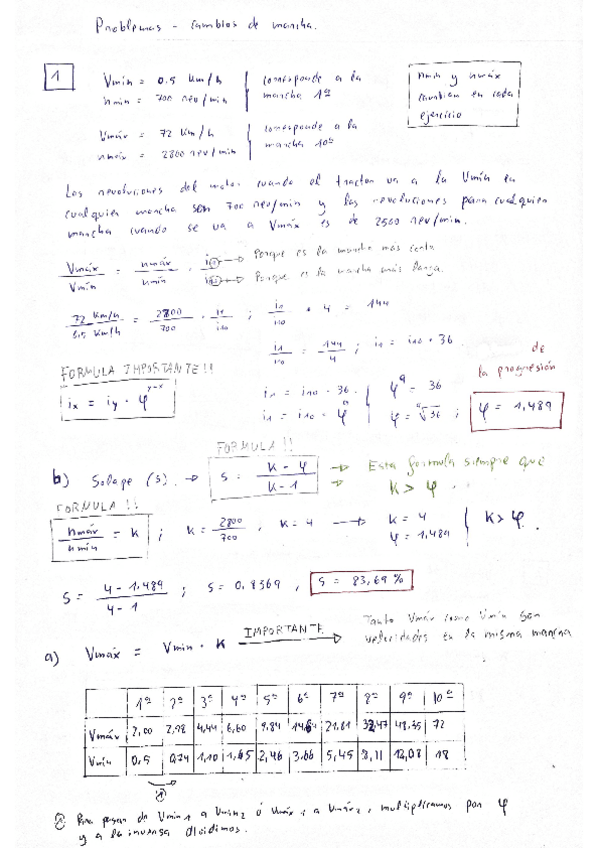 Problemas - Cambios de marcha.
1
Vmín = 0.5 Km/h
nmin = 700 rev/min
corresponde a la
marcha 1ª
nmin y nmáx
cambian en cada
ejercicio
Vmáx = 72 Km/h
nmáx = 2800 rev/min
corresponde a la
marcha 10ª
Las revoluciones del motor cuando el tractor va a la Vmín en
cualquier marcha son 700 rev/min y las revoluciones para cualquier
marcha cuando se va a Vmáx es de 2500 rev/min.
Vmáx / Vmín = nmáx / nmín · i1 / i10
Porque es la marcha más corta
Porque es la marcha más larga.
72 Km/h / 0.5 Km/h = 2800 / 700 · i1 / i10 ; i1 / i10 · 4 = 144
i1 / i10 = 144 / 4 ; i1 = i10 · 36.
FORMULA IMPORTANTE!!
ix = iy · φ^(y-x)
i1 = i10 · 36
i1 = i10 · φ⁹
φ⁹ = 36
φ = ⁹√36 ; φ = 1,489
de
la progresión
FORMULA!!
b) Solape (s). → s = K - φ / K - 1
→ Esta formula siempre que
K > φ
FORMULA!!
nmáx / nmín = K ; K = 2800 / 700 , K = 4 → K = 4
φ = 1,489
K > φ.
S = 4 - 1.489 / 4 - 1 ; S = 0,8369 , S = 83,69 %
a) Vmáx = Vmin · K IMPORTANTE → Tanto Vmáx como Vmín son
velocidades en la misma marcha
1ª 2ª 3ª 4ª 5ª 6ª 7ª 8ª 9ª 10ª
Vmáx 2,00 2,98 4,44 6,60 9,84 14,64 21,81 32,47 48,35 72
Vmín 0,5 0,74 1,10 1,65 2,46 3.66 5,45 8,11 12,08 18
Para pasar de Vmin1 a Vmin2 ó Vmáx1 a Vmáx2, multiplicamos por φ
y a la inversa dividimos.